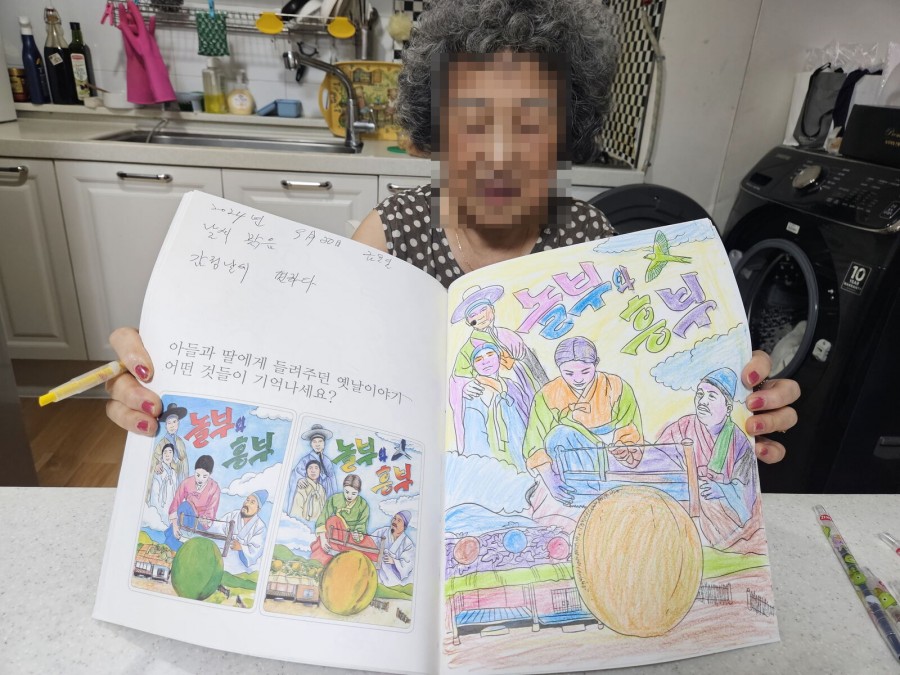 2024년
날씨 맑음
금요일
아들과 딸에게 들려주던 옛날이야기
어떤 것들이 기억나세요?
놀부와
흥부
놀부와
흥부
놀부와
흥부
10